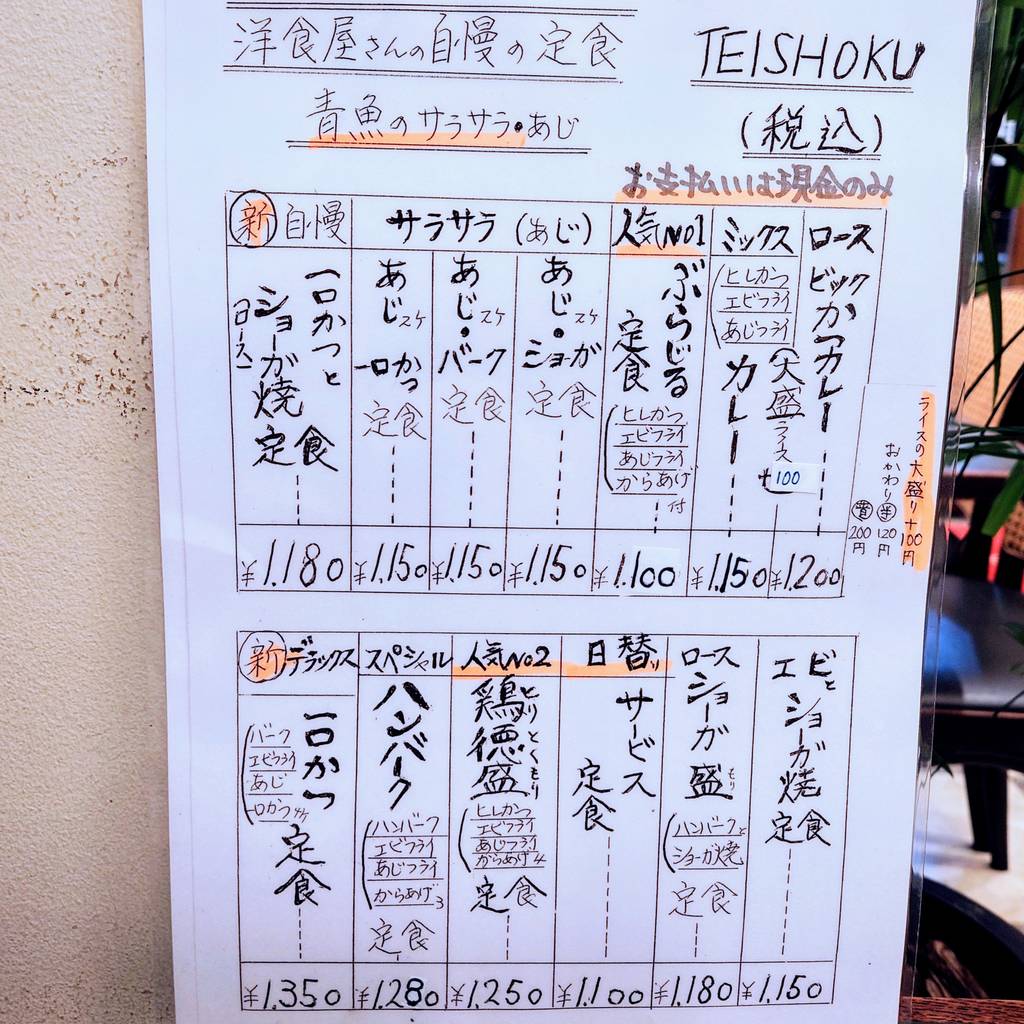 洋食屋さんの自慢の定食
TEISHOKU
青魚のサラサラ・あじ
(税込)
お支払いは現金のみ
新 自慢
一口かつと
ショーガ焼
(ロース)
定食
¥1,180
サラサラ (あじ)
あじ
一口かつ
定食
¥1,150
あじ・
バーグ
定食
¥1,150
あじ・
ショーガ
定食
¥1,150
人気No1
ぶらじる
定食
ヒレかつ
エビフライ
あじフライ
からあげ
付
¥1,100
ミックス
ヒレかつ
エビフライ
あじフライ
カレー
¥1,150
ロース
ビックかつカレー
(大盛ライス
100
¥1,200
ライスの大盛り+100円
おかわり
半 120円
普 200円
新 デラックス
一口かつ
バーク
エビフライ
あじ
一口かつ
定食
¥1,350
スペシャル
ハンバーク
ハンバーク
エビフライ
あじフライ
からあげ3
定食
¥1,280
人気No2
鶏徳盛
とりとくもり
ヒレかつ
エビフライ
あじフライ
からあげ4
定食
¥1,250
日替り
サービス
定食
¥1,100
ロース
ショーガ盛
もり
ハンバークと
ショーガ焼
定食
¥1,180
エビと
ショーガ焼
定食
¥1,150